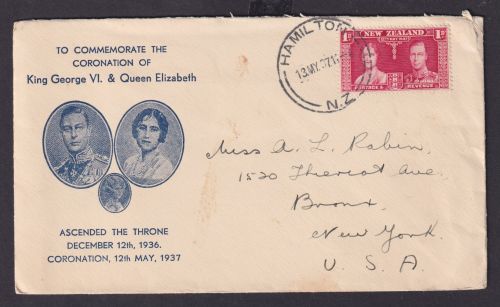 TO COMMEMORATE THE
CORONATION OF
King George VI. & Queen Elizabeth
ASCENDED THE THRONE
DECEMBER 12th, 1936.
CORONATION, 12th MAY, 1937
HAMILTON
13 MY 37
N.Z.
1D NEW ZEALAND 1D
POSTAGE & REVENUE
Miss A. L. Rabin,
1520 Theriot Ave.
Bronx,
New York.
U. S. A.